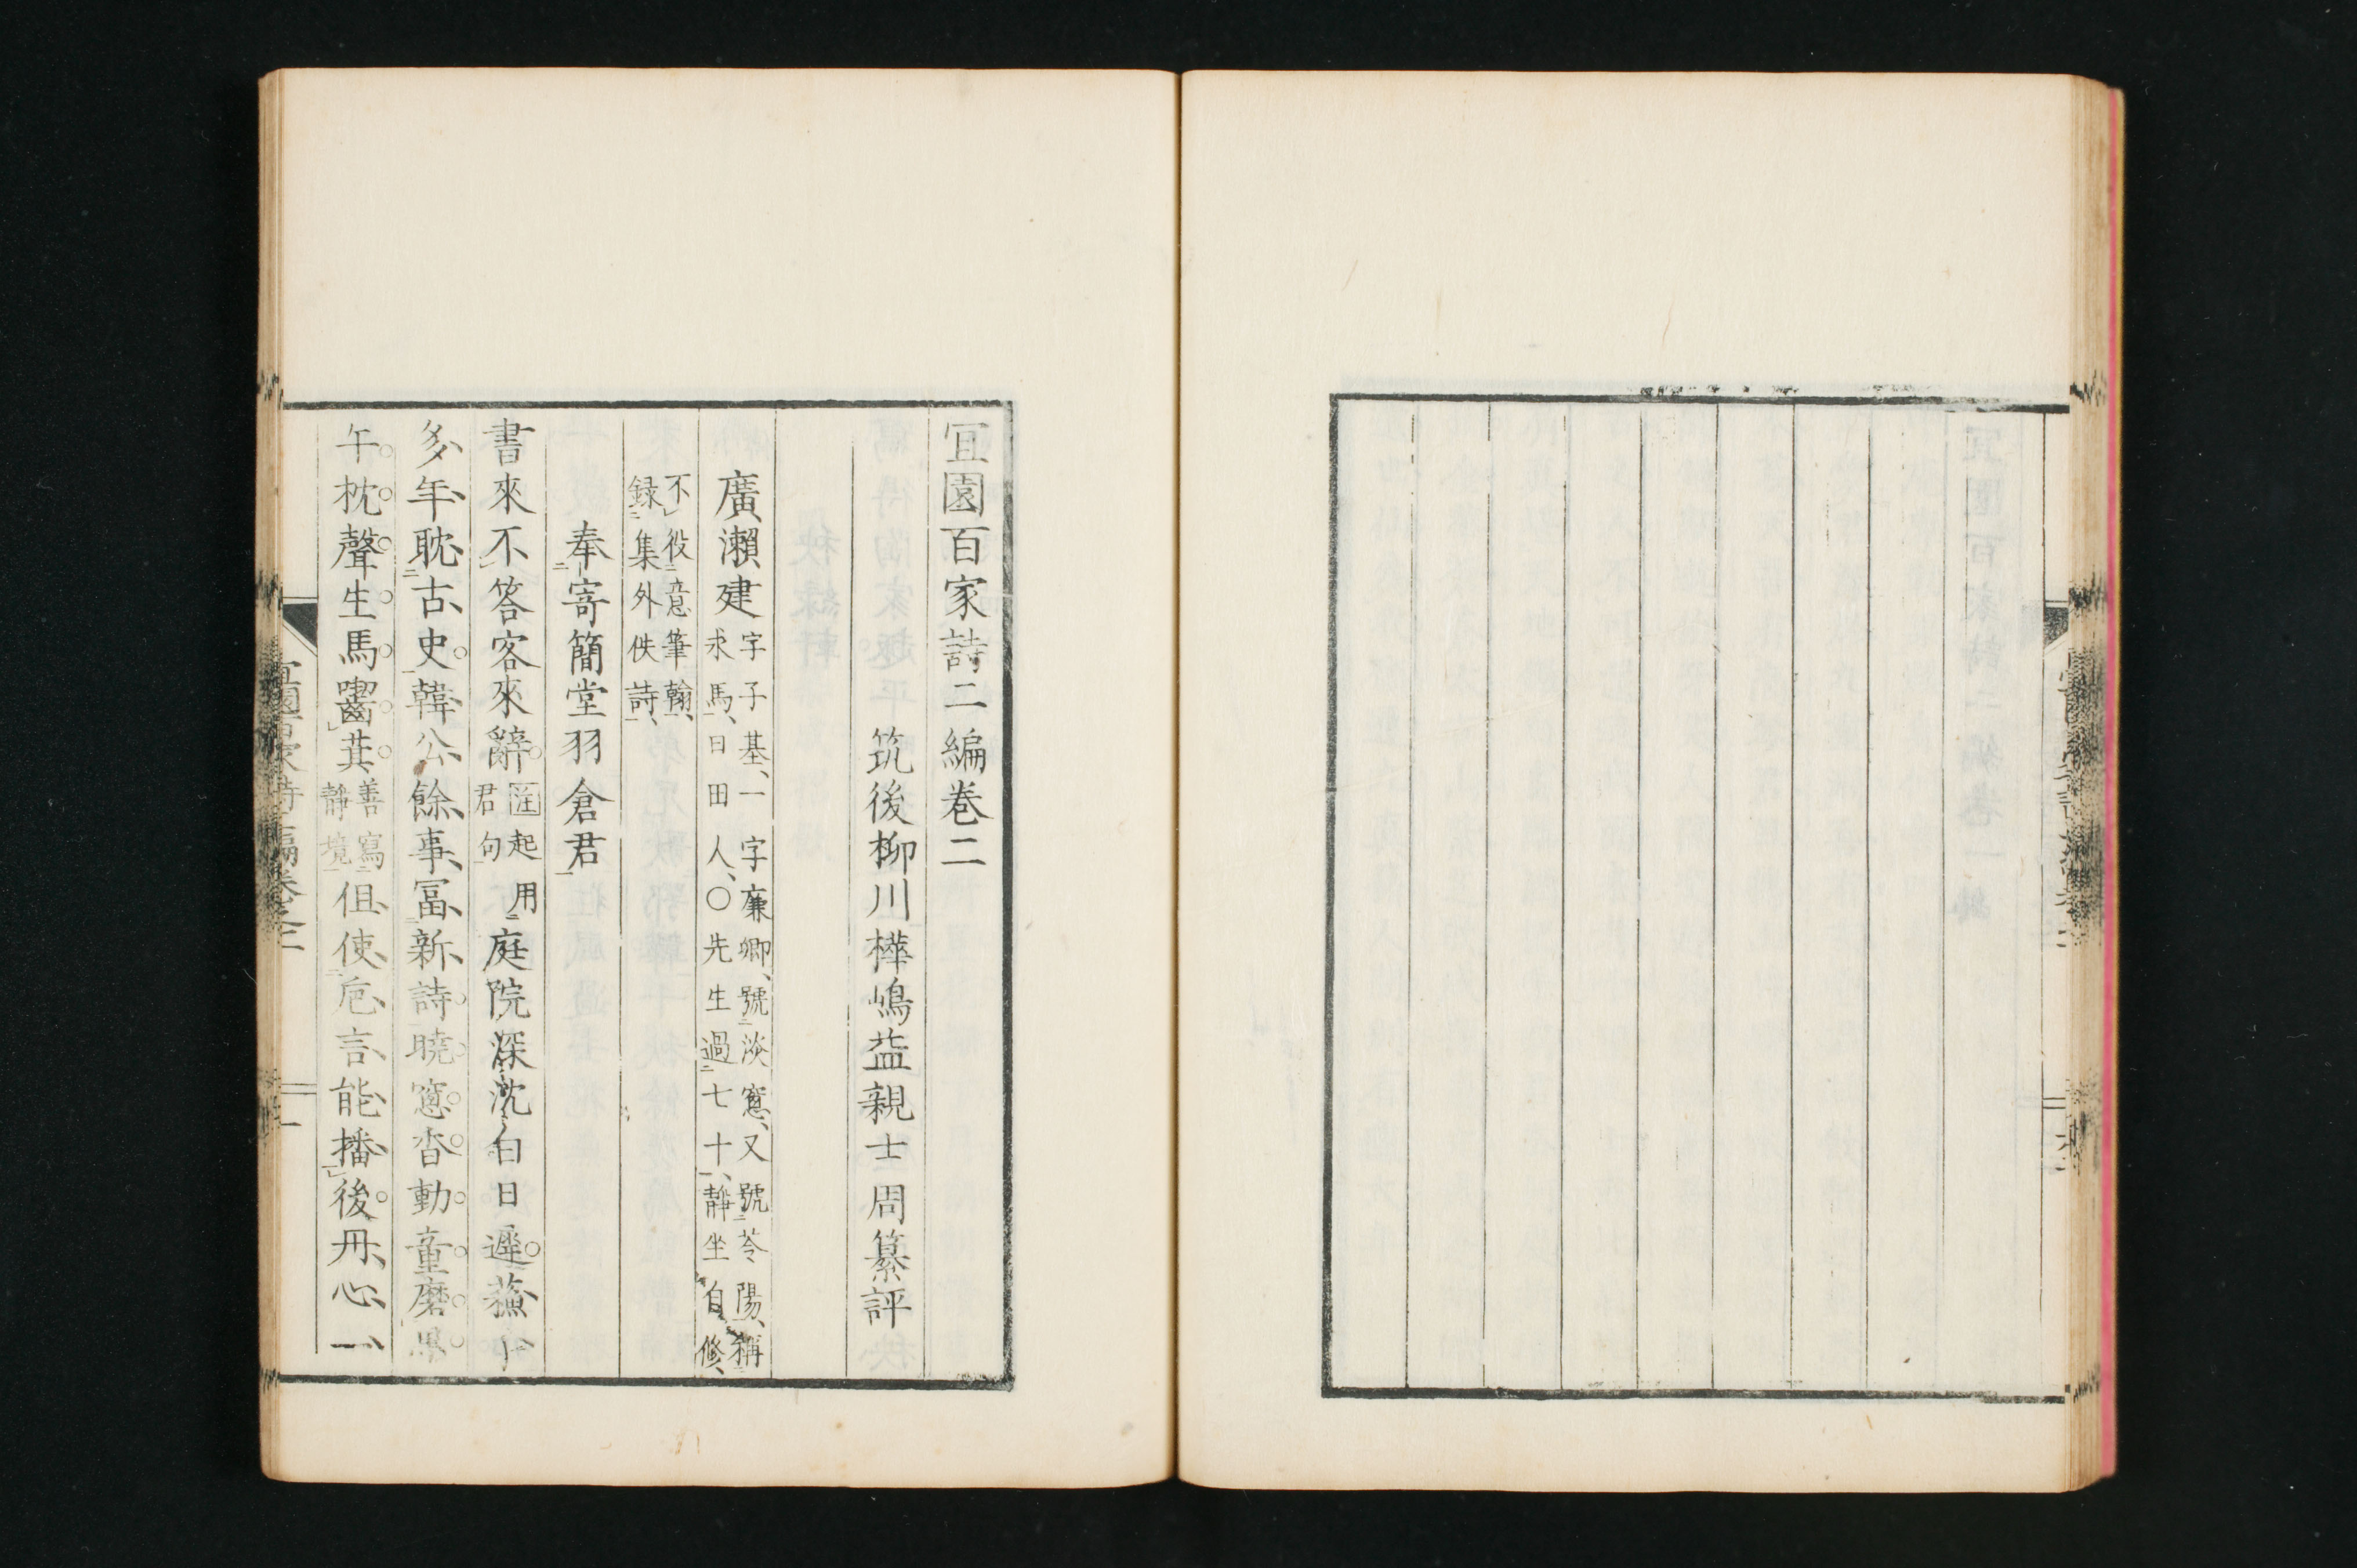 宜園百家詩二編卷二
筑後柳川樺嶋益親士周纂評
廣瀨建
字子基、一字廉卿、號淡窻、又號苓陽、稱
求馬、日田人、〇先生過七十、靜坐自修、
不役意筆翰、
録集外佚詩、
奉寄簡堂羽倉君
書來不答客來辭
起用
君句
庭院深沈白日遲蘓
多年耽古史韓公餘事冨新詩曉窻香動童磨
午枕聲生馬囓萁
善寫
靜境
但使卮言能播後丹心一
宜園百家詩二編卷之二
一